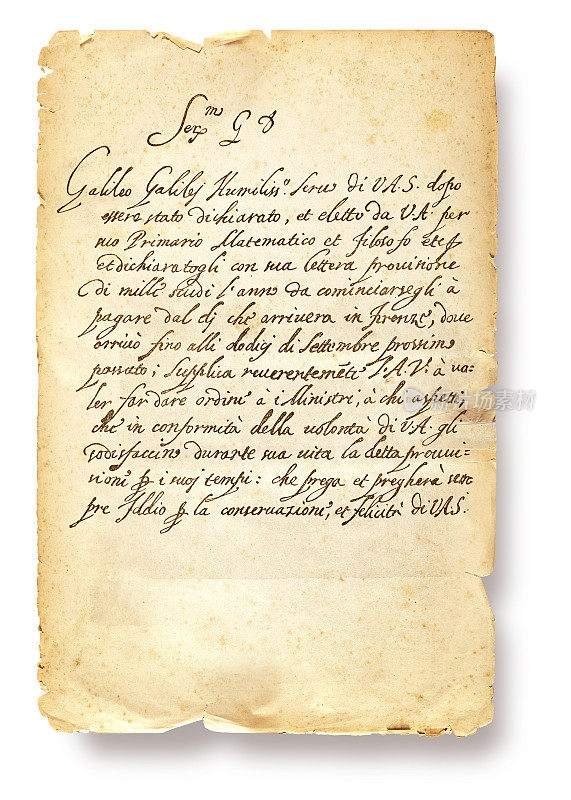 Ser.mo G D
Galileo Galilej Humiliss.o Seruo di V.A.S. dopo
essere stato dichiarato, et eletto da V.A. per
suo Primario Matematico et filosofo et
et dichiaratogli con sua lettera prouisione
di mille scudi l'anno da cominciarsegli à
pagare dal dj che arriuera in firenze, doue
arriuò fino alli dodicj di Settembre prossimo
passato; Supplica reuerentemẽte l'A.V. à ua=
ler far dare ordine à i Ministri, à chi aspetta
che in conformità della uolontà di V.A. gli
sodisfaccino durante sua uita la detta proui=
sione ꝑ i suoj tempi: che prega et pregherà sem
pre Iddio ꝑ la conseruazione, et felicità di V.A.S.
iStock